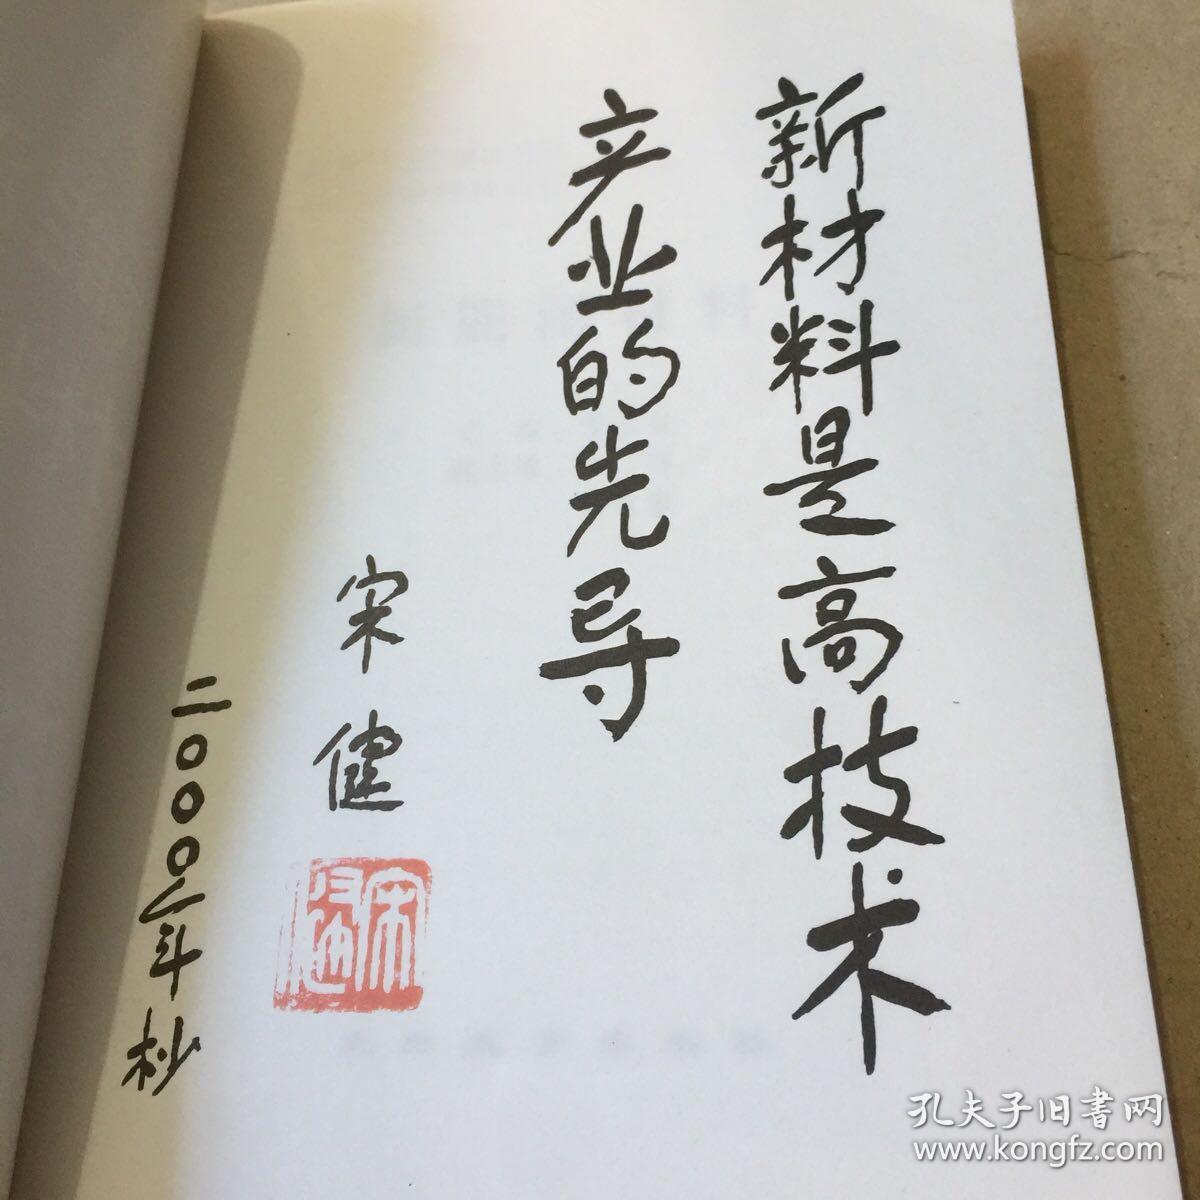 新材料是高技术
产业的先导
宋健
二〇〇〇年杪
宋健
孔夫子旧书网
www.kongfz.com